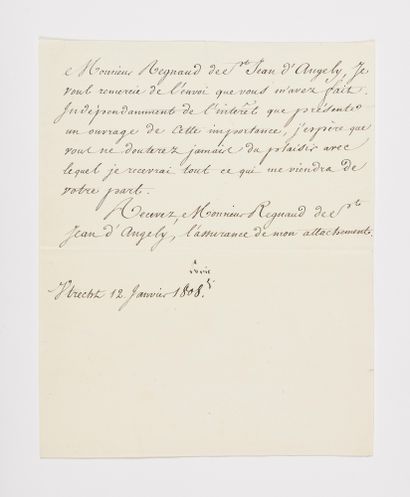 Monsieur Regnaud de St Jean d'Angely, Je
vous remercie de l'envoi que vous m'avez fait.
Indépendamment de l'intérêt que présente
un ouvrage de cette importance, j'espère que
vous ne douterez jamais du plaisir avec
lequel je recevrai tout ce qui me viendra de
votre part.
Recevez, Monsieur Regnaud de St
Jean d'Angely, l'assurance de mon attachement.
Utrecht 12 Janvier 1808.